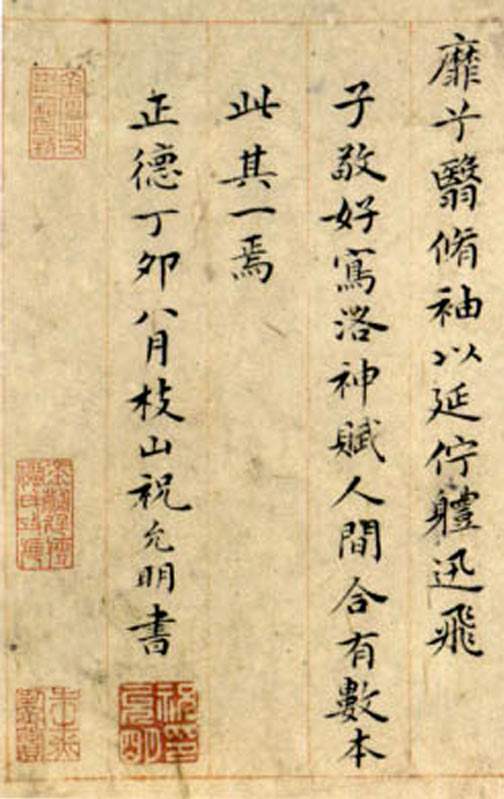 靡兮翳脩袖以延佇軆迅飛
子敬好寫洛神賦人間合有數本
此其一焉
正德丁卯八月枝山祝允明書